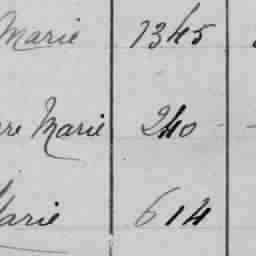 Marie 1345
re Marie 240 -
Marie 614